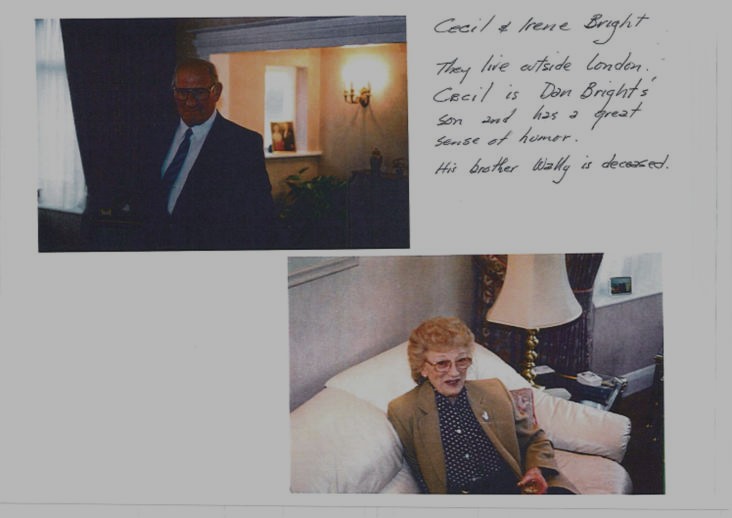 Cecil & Irene Bright
They live outside London.
Cecil is Dan Bright's
son and has a great
sense of humor.
His brother Wally is deceased.